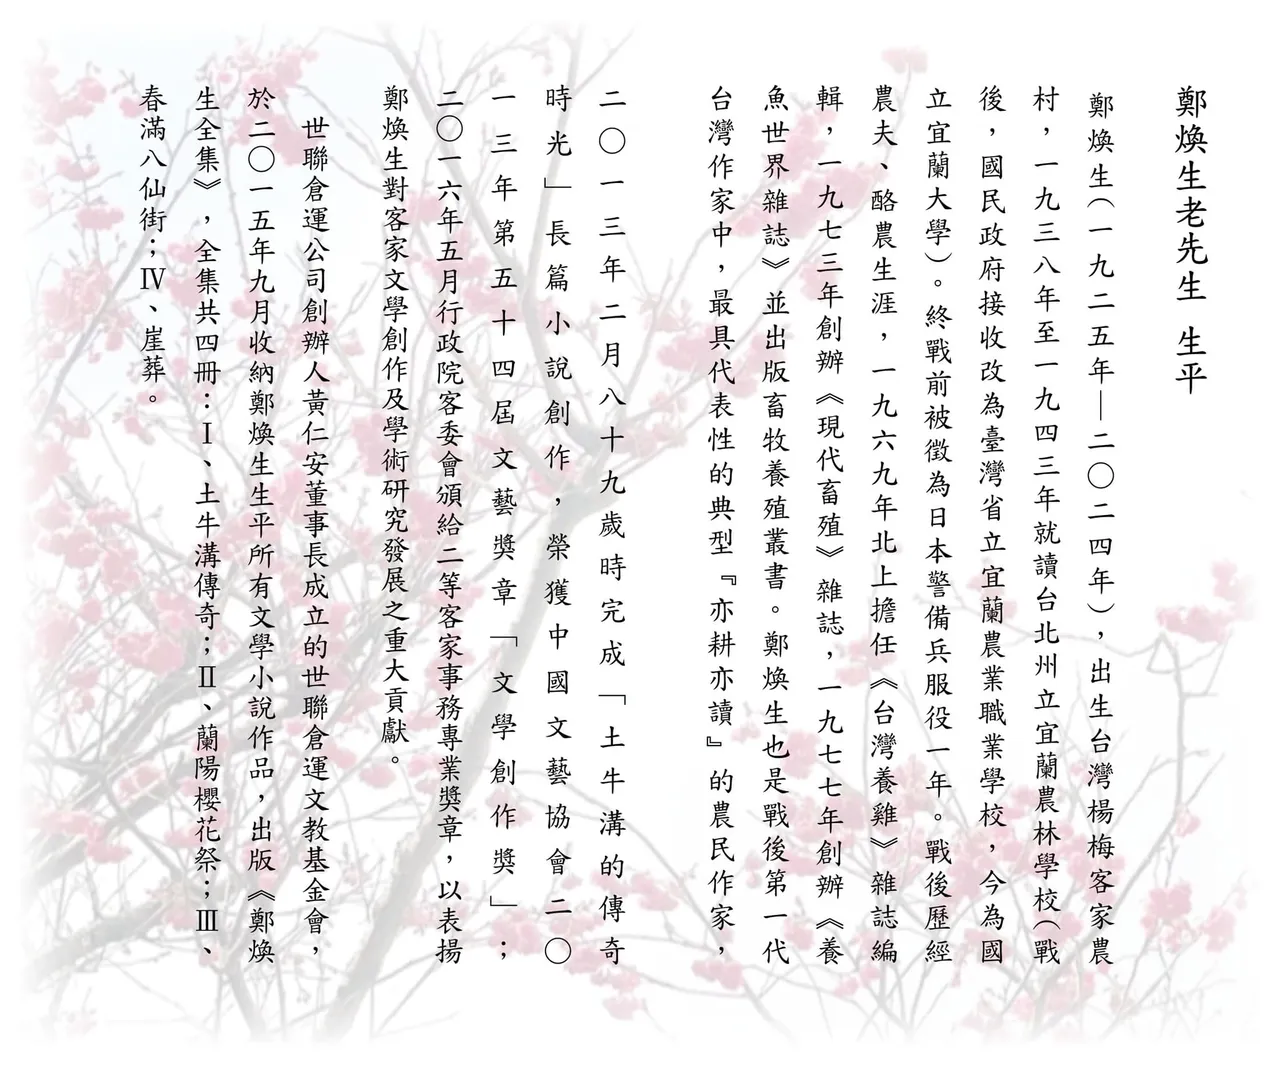 鄭煥生老先生 生平
鄭煥生（一九二五年—二〇二四年），出生台灣楊梅客家農
村，一九三八年至一九四三年就讀台北州立宜蘭農林學校（戰
後，國民政府接收改為臺灣省立宜蘭農業職業學校，今為國
立宜蘭大學）。終戰前被徵為日本警備兵服役一年。戰後歷經
農夫、酪農生涯，一九六九年北上擔任《台灣養雞》雜誌編
輯，一九七三年創辦《現代畜殖》雜誌，一九七七年創辦《養
魚世界雜誌》並出版畜牧養殖叢書。鄭煥生也是戰後第一代
台灣作家中，最具代表性的典型『亦耕亦讀』的農民作家，
二〇一三年二月八十九歲時完成「土牛溝的傳奇
時光」長篇小說創作，榮獲中國文藝協會二〇
一三年第五十四屆文藝獎章「文學創作獎」；
二〇一六年五月行政院客委會頒給二等客家事務專業獎章，以表揚
鄭煥生對客家文學創作及學術研究發展之重大貢獻。
世聯倉運公司創辦人黃仁安董事長成立的世聯倉運文教基金會，
於二〇一五年九月收納鄭煥生生平所有文學小說作品，出版《鄭煥
生全集》，全集共四冊：Ⅰ、土牛溝傳奇；Ⅱ、蘭陽櫻花祭；Ⅲ、
春滿八仙街；Ⅳ、崖葬。